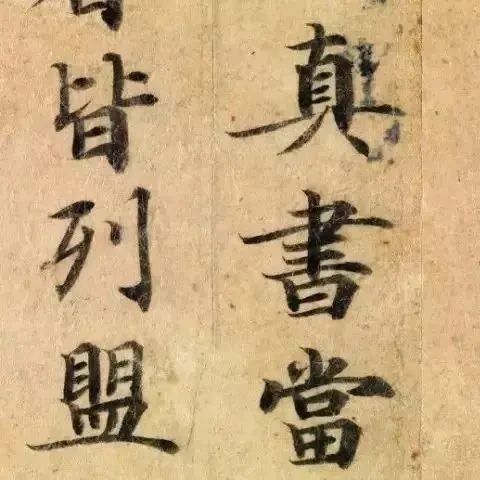 真書當
皆列盟